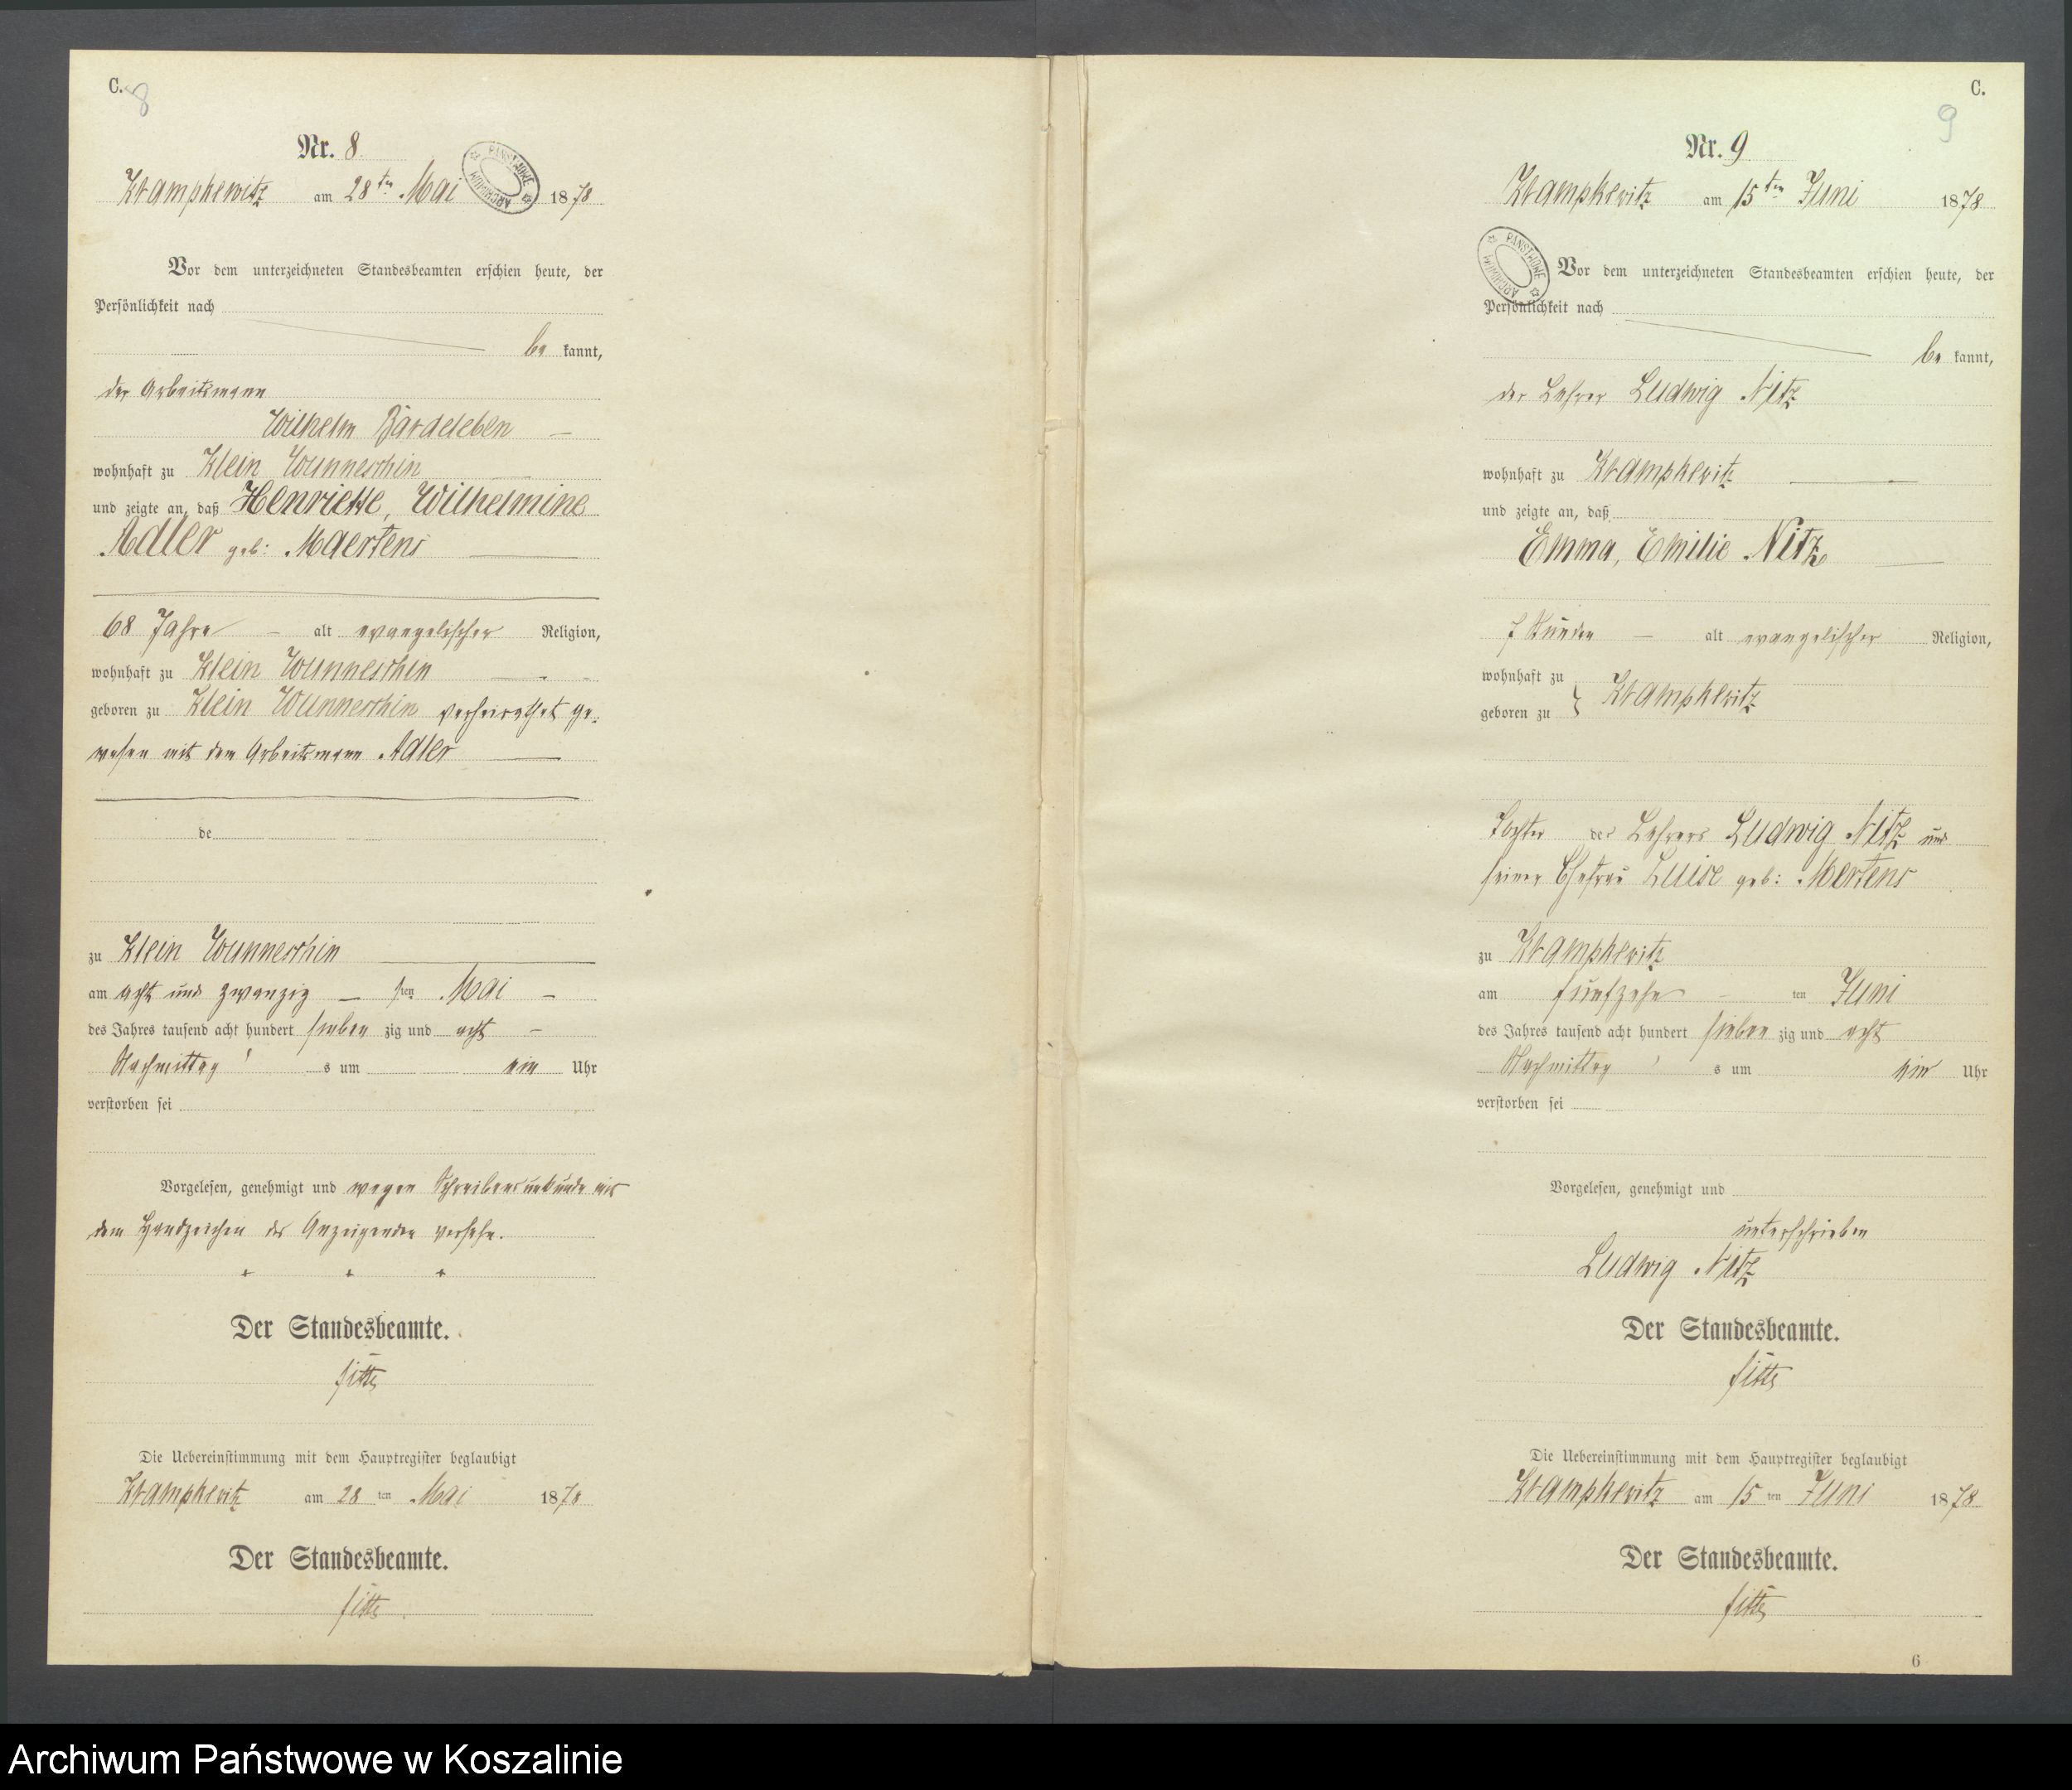 C.
8
Nr. 8
Krampkewitz am 28ten Mai 1878
PANSTWOWE ARCHIWUM
Vor dem unterzeichneten Standesbeamten erschien heute, der
Persönlichkeit nach
be kannt,
der Arbeitsmann
Wilhelm Bardeleben
wohnhaft zu Klein Wunneschin
und zeigte an, daß Henriette, Wilhelmine
Adler geb: Maertens
68 Jahre alt evangelischer Religion,
wohnhaft zu Klein Wunneschin
geboren zu Klein Wunneschin verheirathet ge-
wesen mit dem Arbeitsmann Adler
de
zu Klein Wunneschin
am acht und zwanzig sten Mai
des Jahres tausend acht hundert sieben zig und acht
Nachmittag s um ein Uhr
verstorben sei
Vorgelesen, genehmigt und wegen Schreibensunkunde mit
dem Handzeichen des Anzeigenden versehn.
+ + +
Der Standesbeamte.
Die Uebereinstimmung mit dem Hauptregister beglaubigt
Krampkewitz am 28 ten Mai 1878
Der Standesbeamte.
C.
9
Nr. 9
Krampkewitz am 15ten Juni 1878
PANSTWOWE ARCHIWUM
Vor dem unterzeichneten Standesbeamten erschien heute, der
Persönlichkeit nach
be kannt,
der Lehrer Ludwig Nitz
wohnhaft zu Krampkewitz
und zeigte an, daß
Emma, Emilie Nitz
7 Stunden alt evangelischer Religion,
wohnhaft zu
geboren zu } Krampkewitz
Tochter des Lehrers Ludwig Nitz und
seiner Ehefrau Luise geb: Mertens
zu Krampkewitz
am fünfzehn ten Juni
des Jahres tausend acht hundert sieben zig und acht
Nachmittag s um ein Uhr
verstorben sei
Vorgelesen, genehmigt und
unterschrieben
Ludwig Nitz
Der Standesbeamte.
Die Uebereinstimmung mit dem Hauptregister beglaubigt
Krampkewitz am 15 ten Juni 1878
Der Standesbeamte.
6
Archiwum Państwowe w Koszalinie